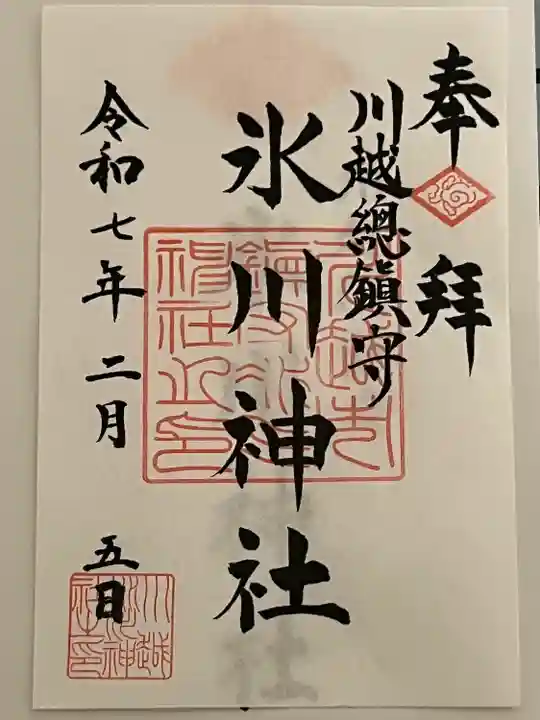 奉拜
川越總鎮守
氷川神社
令和七年二月五日
川越氷川神社之印